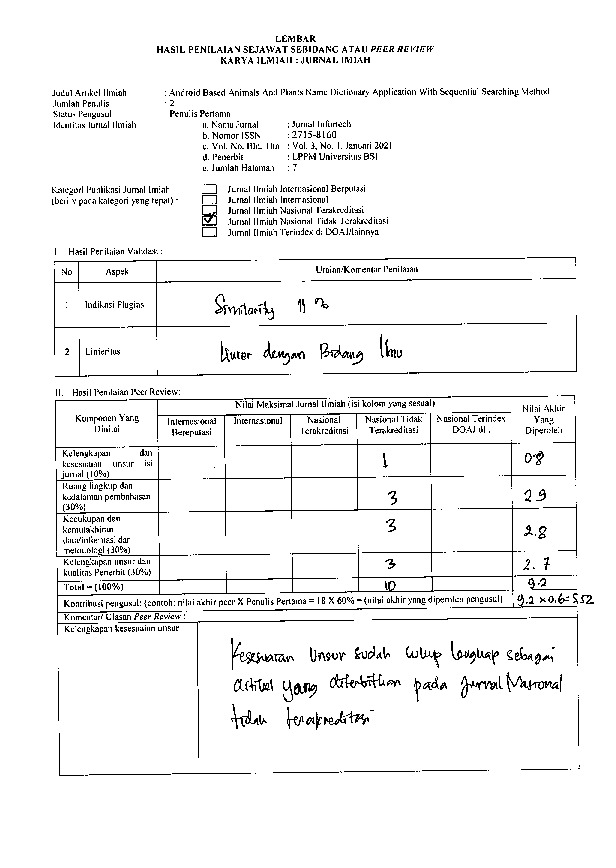 LEMBAR
HASIL PENILAIAN SEJAWAT SEBIDANG ATAU PEER REVIEW
KARYA ILMIAH : JURNAL IMIAH
Judul Artikel Ilmiah : Android Based Animals And Plants Name Dictionary Application With Sequential Searching Method
Jumlah Penulis : 2
Status Pengusul Penulis Pertama
Identitas Jurnal Ilmiah a. Nama Jurnal : Jurnal Infortech
b. Nomor ISSN : 2715-8160
c. Vol. No. Bln. Thn : Vol. 3, No. 1, Januari 2021
d. Penerbit : LPPM Universitas BSI
e. Jumlah Halaman : 7
Kategori Publikasi Jurnal Imiah Jurnal Ilmiah Internasional Berputasi
(beri v pada kategori yang tepat) : Jurnal Ilmiah Internasional
Jurnal Ilmiah Nasional Terakreditasi
Jurnal Ilmiah Nasional Tidak Terakreditasi
Jurnal Ilmiah Terindex di DOAJ/lainnya
I. Hasil Penilaian Validasi :
No Aspek Uraian/Komentar Penilaian
1 Indikasi Plagias Similarity 11 %
2 Linieritas Linier dengan Bidang Ilmu
II. Hasil Penilaian Peer Review:
Komponen Yang Dinilai
Nilai Maksimal Jurnal Ilmiah (isi kolom yang sesuai)
Nilai Akhir Yang Diperoleh
Internasional Bereputasi
Internasional
Nasional Terakreditasi
Nasional Tidak Terakreditasi
Nasional Terindex DOAJ dll.
Kelengkapan dan
kesesuaian unsur isi
jurnal (10%) 1 0.8
Ruang lingkup dan
kedalaman pembahasan
(30%) 3 2.9
Kecukupan dan
kemutakhiran
data/informasi dan
metodologi (30%) 3 2.8
Kelengkapan unsur dan
kualitas Penerbit (30%) 3 2.7
Total = (100%) 10 9.2
Kontribusi pengusul: (contoh: nilai akhir peer X Penulis Pertama = 18 X 60% = (nilai akhir yang diperolen pengusul) 9.2 x 0.6 = 5.52
Komentar/ Ulasan Peer Review :
Kelengkapan kesesuaian unsur
Kesesuaian Unsur Sudah cukup lengkap sebagai
artikel yang diterbitkan pada Jurnal Nasional
tidak terakreditasi